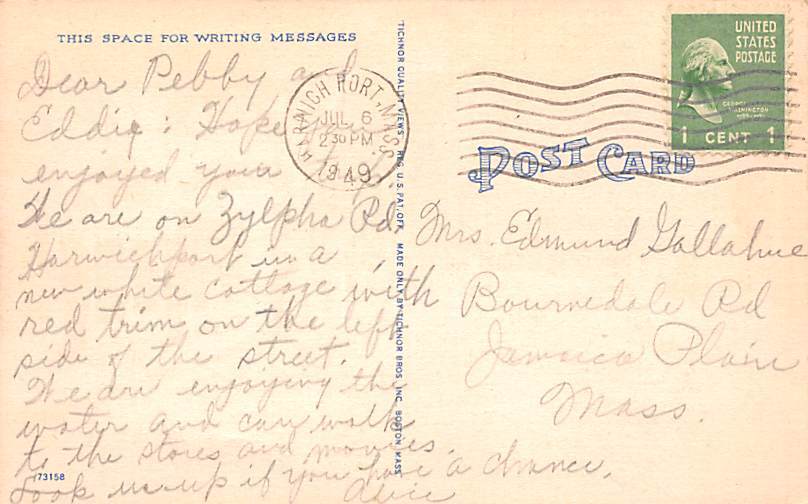 THIS SPACE FOR WRITING MESSAGES
Dear Pebby and
Eddie: Hope you
enjoyed your
We are on Zylpha Rd.
Harwichport in a
new white cottage with
red trim on the left
side of the street.
We are enjoying the
water and can walk
to the stores and movies.
Look us up if you have a chance.
Alice
73158
TICHNOR QUALITY VIEWS REG. U.S. PAT. OFF. MADE ONLY BY TICHNOR BROS. INC. BOSTON MASS.
HARWICH PORT, MASS.
JUL 6
2 30 PM
1949
UNITED
STATES
POSTAGE
GEORGE
WASHINGTON
1 CENT 1
POST CARD
Mrs. Edmund Gallahue
Bournedale Rd
Jamaica Plain
Mass.